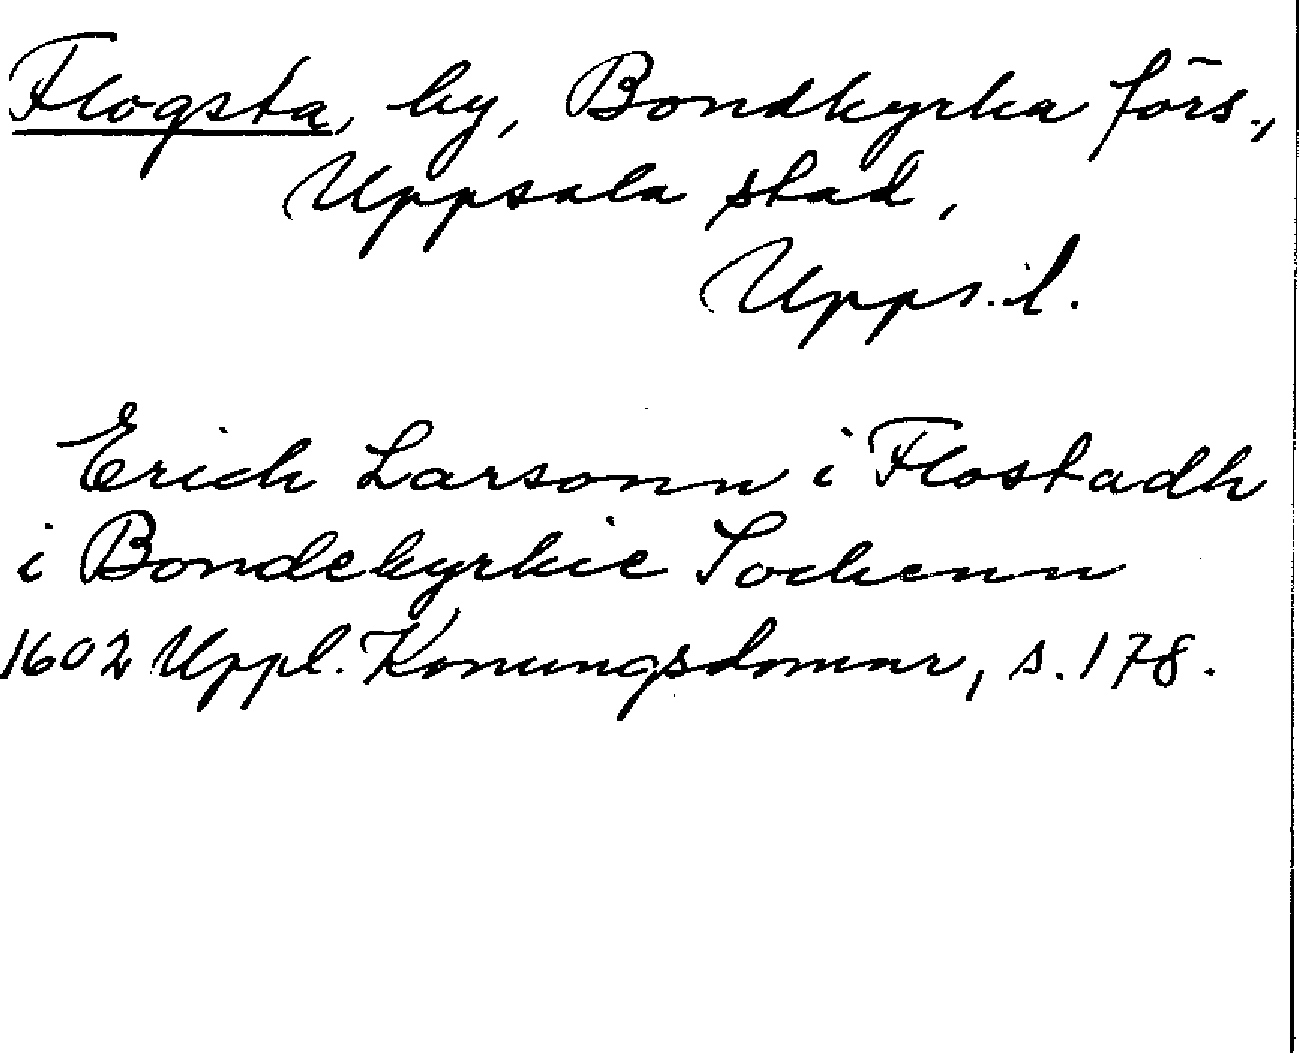 Flogsta, by, Bondkyrka förs.,
Uppsala stad,
Upps. l.
Erich Larsonn i Flostadh
i Bondekyrkie Sochenn
1602 Uppl. Konungsdomar, s. 178.